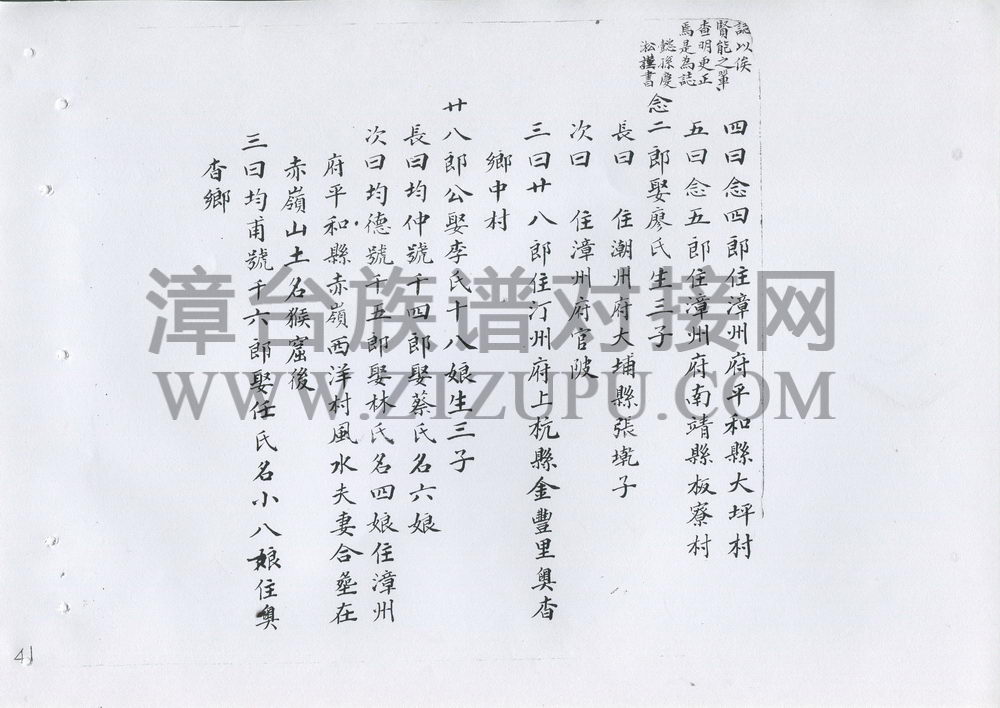 誌以俟
賢能之單
查明更正
焉是為誌
懿孫慶
崧謹書
四曰念四郎住漳州府平和縣大坪村
五曰念五郎住漳州府南靖縣板寮村
念二郎娶廖氏生三子
長曰 住潮州府大埔縣張墘子
次曰 住漳州府官陂
三曰廿八郎住汀州府上杭縣金豐里奧杳
鄉中村
廿八郎公娶李氏十八娘生三子
長曰均仲號千四郎娶蔡氏名六娘
次曰均德號千五郎娶林氏名四娘住漳州
府平和縣赤嶺西洋村風水夫妻合塟在
赤嶺山土名猴窟後
三曰均甫號千六郎娶任氏名小八娘住奧
杳鄉
漳台族谱对接网
WWW.ZIZUPU.COM
41